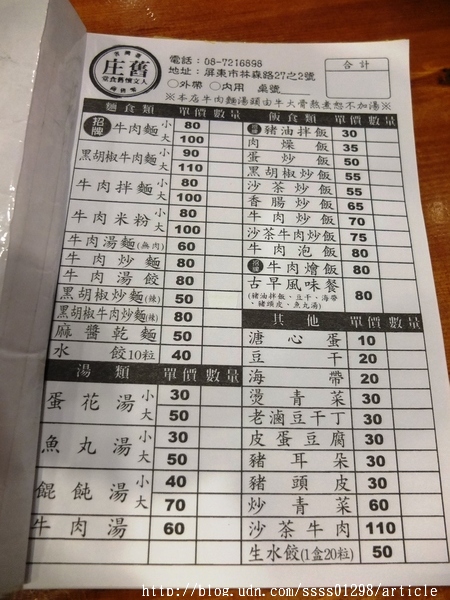 舊庄
電話：08-7216898
地址：屏東市林森路27之2號
○外帶 ○內用 桌號
合計
※本店牛肉麵湯頭由牛大骨熬煮恕不加湯※
麵食類 單價 數量
招牌 牛肉麵 小 80
大 100
黑胡椒牛肉麵 小 90
大 110
牛肉拌麵 小 80
大 100
牛肉米粉 小 80
大 100
牛肉湯麵(無肉) 60
牛肉炒麵 80
牛肉湯餃 80
黑胡椒炒麵(辣) 50
黑胡椒牛肉炒麵(辣) 80
麻醬乾麵 50
水餃10粒 40
湯類 單價 數量
蛋花湯 小 30
大 50
魚丸湯 小 30
大 50
餛飩湯 小 40
大 70
牛肉湯 60
飯食類 單價 數量
豬油拌飯 30
肉燥飯 35
蛋炒飯 50
黑胡椒炒飯 55
沙茶炒飯 55
香腸炒飯 65
牛肉炒飯 70
沙茶牛肉炒飯 75
牛肉泡飯 80
牛肉燴飯 80
古早風味餐 80
(豬油拌飯、豆干、海帶、豬頭皮、魚丸湯)
其他 單價 數量
溏心蛋 10
豆干 20
海帶 20
燙青菜 30
老滷豆干丁 30
皮蛋豆腐 30
豬耳朵 30
豬頭皮 30
炒青菜 60
沙茶牛肉 110
生水餃(1盒20粒) 50
http://blog.udn.com/ssss01298/article